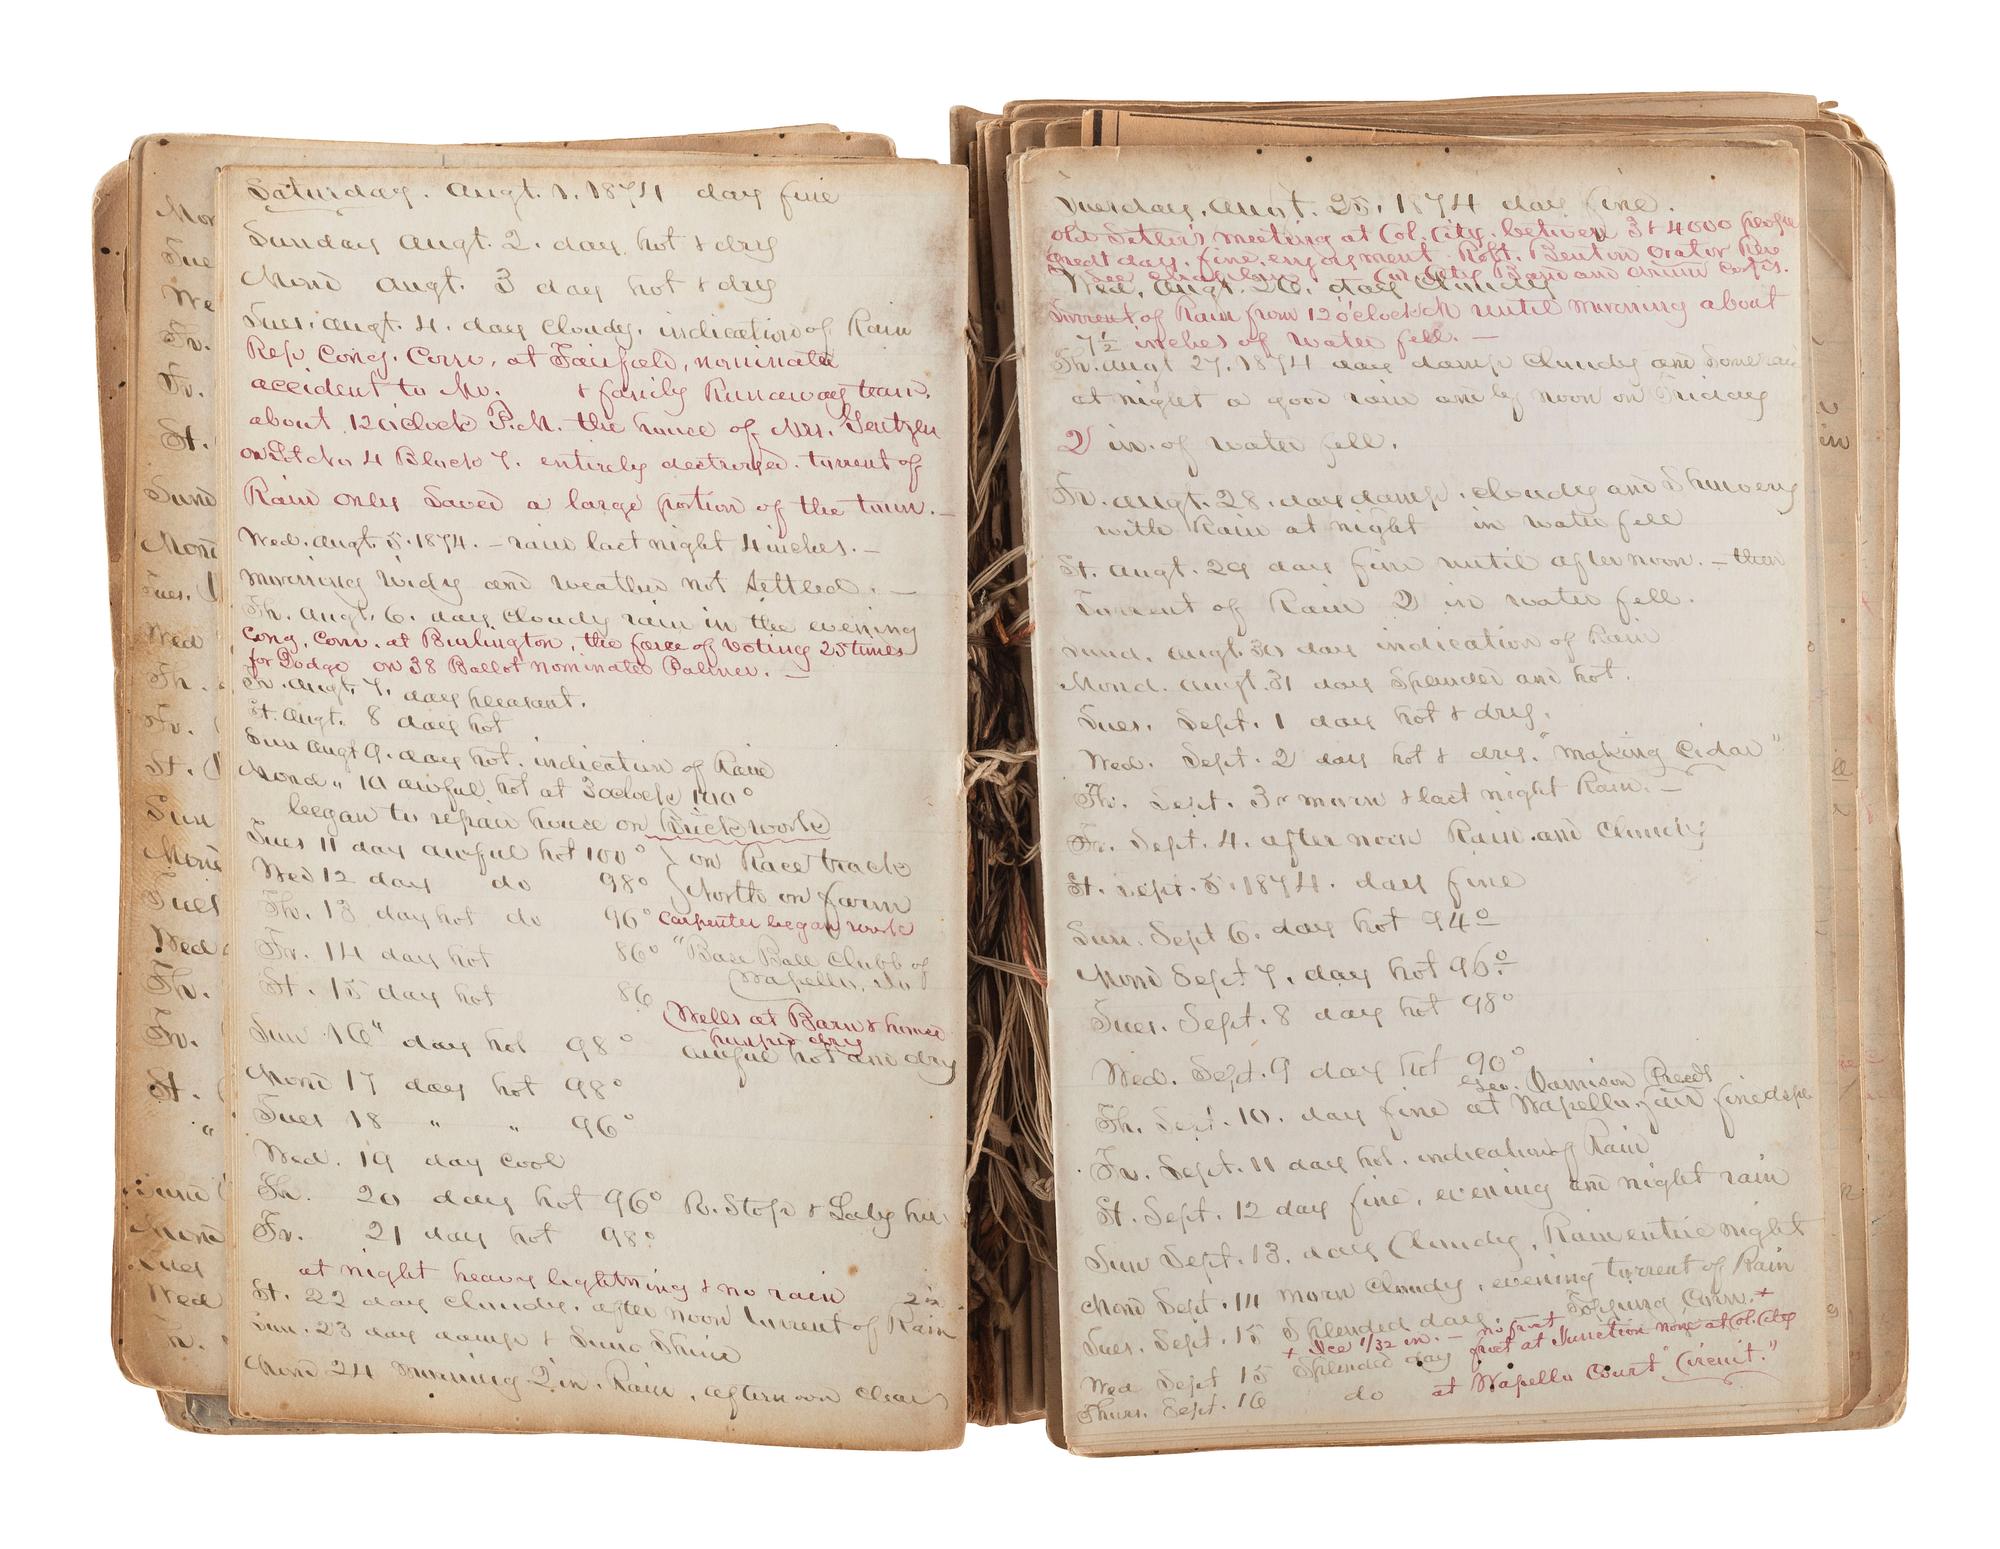 Saturday. Augt. 1. 1874 day fine
Sunday Augt. 2. day hot & dry
Mond Augt. 3 day hot & dry
Tues. Augt. 4. day cloudy. indication of Rain
Rep. Cong. Conv. at Fairfield, nominate
accident to Mr. & family Runaway team.
about 12 o'clock P.M. the house of Mrs.
on Lot No 4 Block 7. entirely destroyed. torrent of
Rain only saved a large portion of the town. —
Wed. Augt. 5. 1874. — rain last night 4 inches. —
morning windy and weather not settled. —
Th. Augt. 6. day Cloudy rain in the evening
Cong. Conv. at Burlington, the farce of voting 25 times
for Dodge on 38 Ballot nominated Palmer. —
Fr. Augt. 7. day pleasant.
St. Augt. 8 day hot
Sun Augt 9. day hot. indication of Rain
Mond „ 10 awful hot at 3 oclock 100°
began to repair house on brick work
Tues 11 day awful hot 100° } on Race track
Wed 12 day do 98° { North on farm
Th. 13 day hot do 96° Carpenter began work
Fr. 14 day hot 86° "Base Ball Clubb of
Wapello, Io
St. 15 day hot 86
Wells at Barn & home
pumped dry
Sun 16" day hot 98° awful hot and dry
Mond 17 day hot 98°
Tues 18 " " 96°
Wed. 19 day cool
Th. 20 day hot 96° R. Stop & Lady
Fr. 21 day hot 98°
at night heavy lightning & no rain
St. 22 day cloudy. after noon torrent of Rain
Sun. 23 day damp & Sun Shine
Mond 24 morning 2 in. Rain, afternoon clear
Tuesday, Augt. 25. 1874 day fine.
Old Settler's meeting at Col. City. between 3 & 4000 people
great day. fine enjoyment. Robt. Benton Orator
See City Band and drum corps.
Wed. Augt. 26. day Cloudy
Torrent of Rain from 12 o'clock until morning about
7 1/2 inches of water fell. —
Th. Augt 27. 1874 day damp cloudy and some rain
at night a good rain and by noon on Friday
2 in. of water fell.
Fr. Augt. 28. day damp. cloudy and Showery
with Rain at night in water fell
St. Augt. 29 day fine until afternoon. — then
Torrent of Rain 2 in water fell.
Sund. Augt. 30 day indication of Rain
Mond. Augt. 31 day Splendid and hot.
Tues. Sept. 1 day hot & dry.
Wed. Sept. 2 day hot & dry. "making Cidar"
Th. Sept. 3 morn & last night Rain. —
Fr. Sept. 4. after noon Rain and Cloudy
St. Sept. 5. 1874. day fine
Sun. Sept 6. day hot 94°
Mond Sept 7. day hot 96°
Tues. Sept. 8 day hot 98°
Wed. Sept. 9 day hot 90°
Geo. Reeds
Th. Sept. 10. day fine at Wapello fair
Fr. Sept. 11 day hot. indication of Rain
St. Sept. 12 day fine, evening and night rain
Sun Sept. 13. day Cloudy, Rain entire night
Mond Sept. 14 morn Cloudy, evening torrent of Rain
Tues. Sept. 15 Splended day. Topping Corn. +
+ Ice 1/32 in. — no frost
frost at Junction none at Col. City
Wed Sept 15 Splended day
at Wapello Court "Circuit."
Thurs. Sept. 16 do